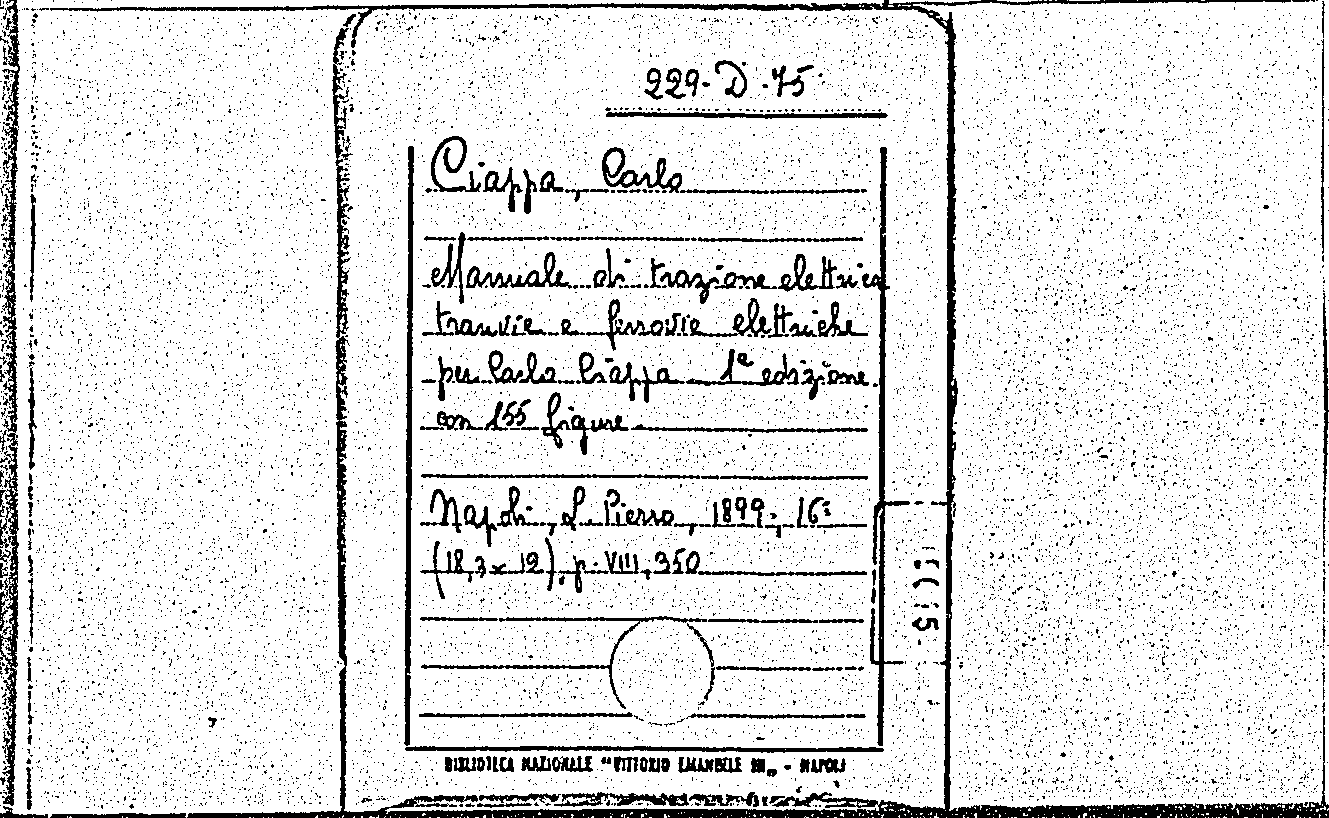 229-D-75
Ciappa, Carlo
Manuale di trazione elettrica
tranvie e ferrovie elettriche
per Carlo Ciappa 1ª edizione
con 155 figure.
Napoli, L. Pierro, 1899, 16º
(18,3 x 12), p. VIII, 350
BIBLIOTECA NAZIONALE "VITTORIO EMANUELE III„ - NAPOLI